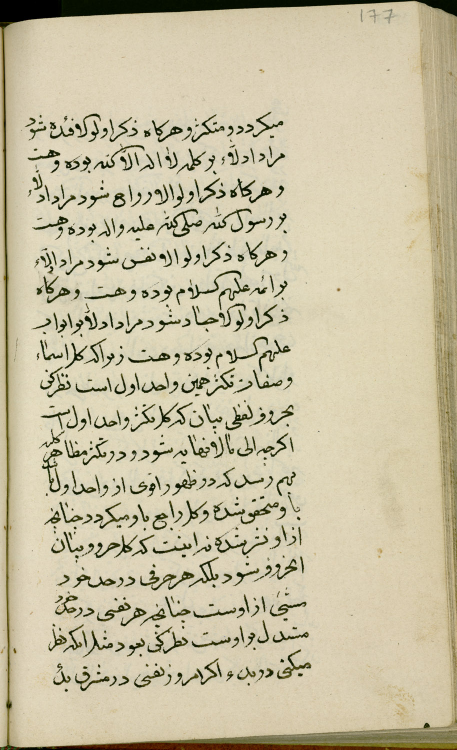 177
میکردد و متکثر و هرکاه ذکر اولو الافئده شود
مراد ادلاّء بر کلمه لا اله الا الله بوده و هست
و هرکاه ذکر اولو الارواح شود مراد ادلاّء
بر رسول الله صلی الله علیه و اله بوده و هست
و هرکاه ذکر اولو الانفس شود مراد ادلاّء
بر ائمه علیهم السلام بوده و هست و هرکاه
ذکر اولو الاجساد شود مراد ادلاّء بر ابواب
علیهم السلام بوده و هست زیرا که کل اسماء
و صفات تکثر همین واحد اول است نظر کن
بحروف لفظی بیان که کل تکثر واحد اول است
اکرچه الی مالانهایه شود و در تکثر مظاهر کلیه
بهم رسد که در ظهور اقوی از واحد اول
باو متحقق شده و کل راجع باو میکردد چنانچه
از او نشر شده نه اینست که کل حروف بیان
ان حروف شود بلکه هر حرفی در حد خود
مشیئ از اوست چنانچه هر نفسی در حد خود
مستدل بر اوست نظر کن بعود مثلا اینکه نظر
میکنی در بدء اکر امروز نفسی در مشرق بدئ